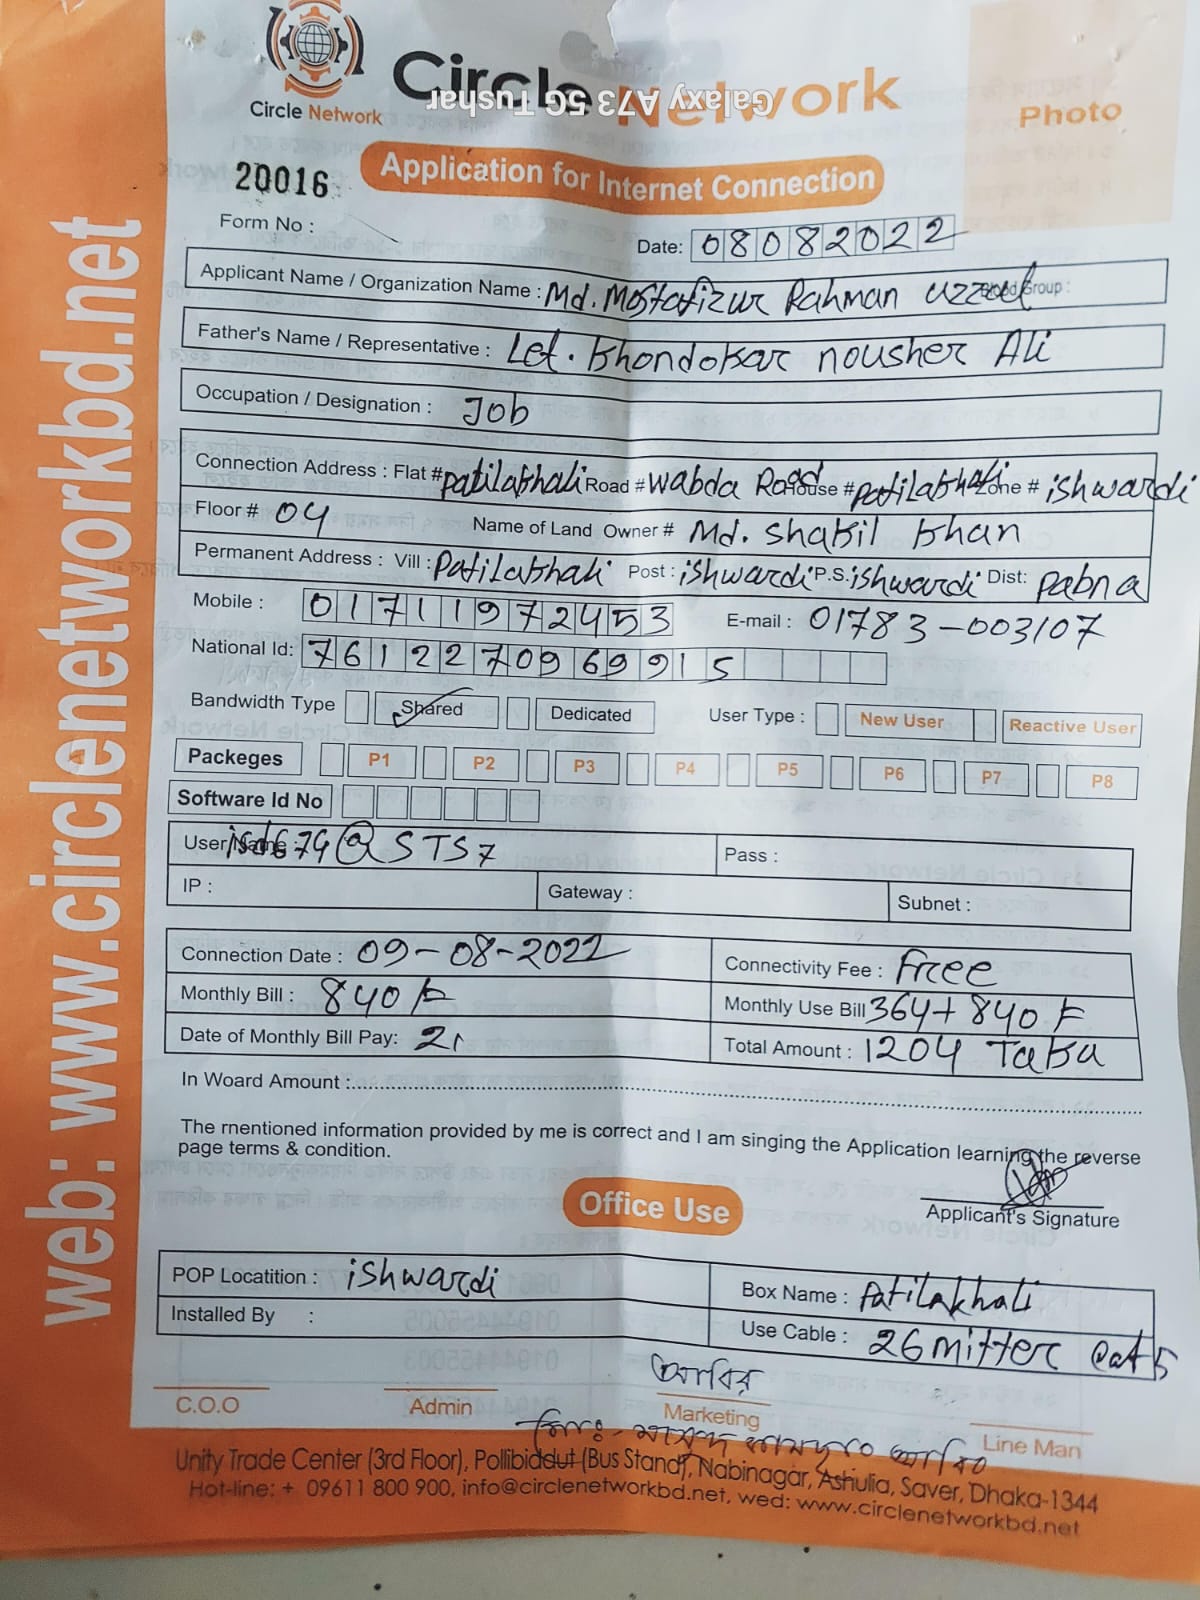 Circle Network
Circle Network
Galaxy A73 5G Tushar
Photo
Application for Internet Connection
20016
Form No :
Date: 08082022
Applicant Name / Organization Name : Md. Mostafizur Rahman uzzal Blood Group :
Father's Name / Representative : Let. Khondokar nousher Ali
Occupation / Designation : Job
Connection Address : Flat # patilakhali Road # wabda Road House # patilakhali Zone # ishwardi
Floor # 04 Name of Land Owner # Md. Shakil Khan
Permanent Address : Vill : Patilakhali Post : ishwardi P.S: ishwardi Dist: pabna
Mobile : 01711972453 E-mail : 01783-003107
National Id: 7612270969915
Bandwidth Type Shared Dedicated User Type : New User Reactive User
Packeges P1 P2 P3 P4 P5 P6 P7 P8
Software Id No
User Name : isd679@STS7 Pass :
IP : Gateway : Subnet :
Connection Date : 09-08-2022 Connectivity Fee : Free
Monthly Bill : 840 Monthly Use Bill 364+840
Date of Monthly Bill Pay: Total Amount : 1204 Taka
In Woard Amount :
The rnentioned information provided by me is correct and I am singing the Application learning the reverse
page terms & condition.
Applicant's Signature
Office Use
POP Locatition : ishwardi Box Name : Patilakhali
Installed By : Use Cable : 26 mitter cat5
আবির
C.O.O Admin Marketing Line Man
Unity Trade Center (3rd Floor), Pollibiddut (Bus Stand), Nabinagar, Ashulia, Saver, Dhaka-1344
Hot-line: + 09611 800 900, info@circlenetworkbd.net, wed: www.circlenetworkbd.net
web: www.circlenetworkbd.net